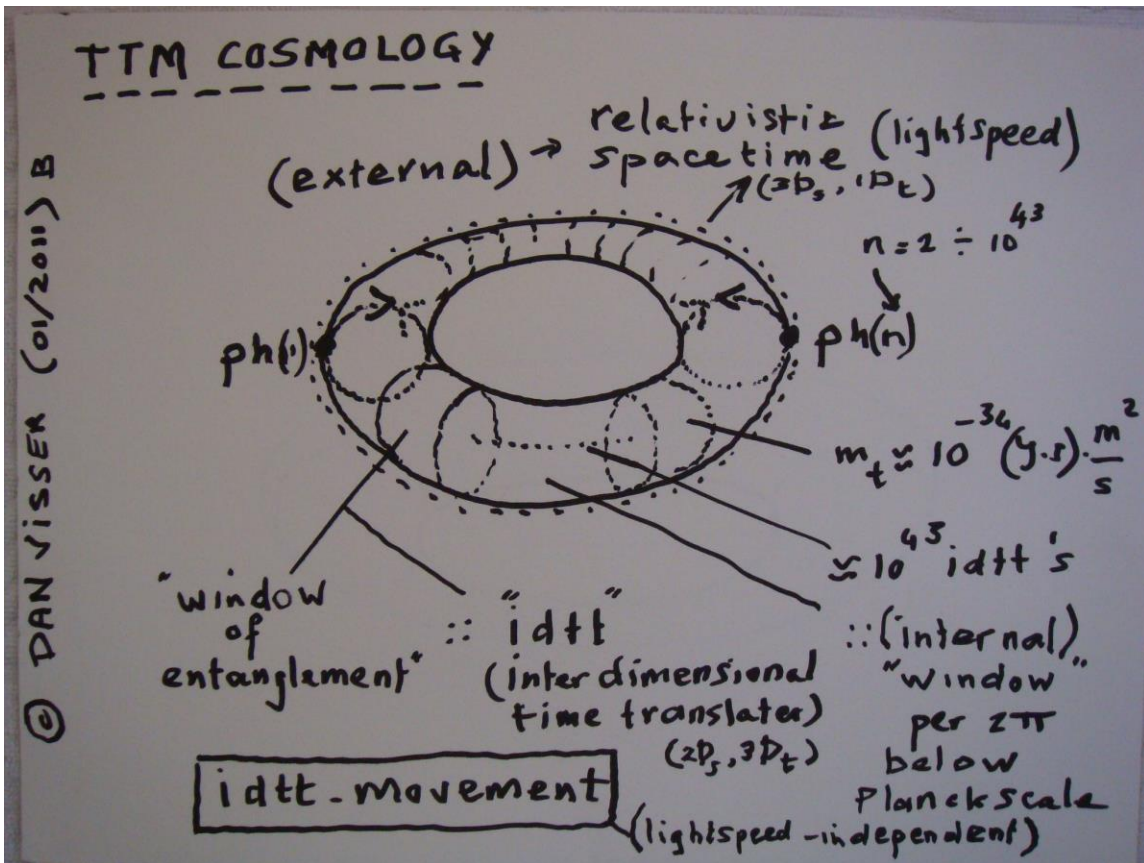 TTM COSMOLOGY
© DAN VISSER (01/2011) B
(external) → relativistic
spacetime (lightspeed)
(3D_s, 1D_t)
n = 2 ÷ 10^43
ph(1)
ph(n)
m_t ≈ 10^-34 (y.s). m^2/s
≈ 10^43 idtt's
"window
of
entanglement"
:: "idtt"
(interdimensional
time translater)
(2D_s, 3D_t)
:: (internal)
"window"
per 2π
below
Planckscale
idtt-movement
(lightspeed-independent)